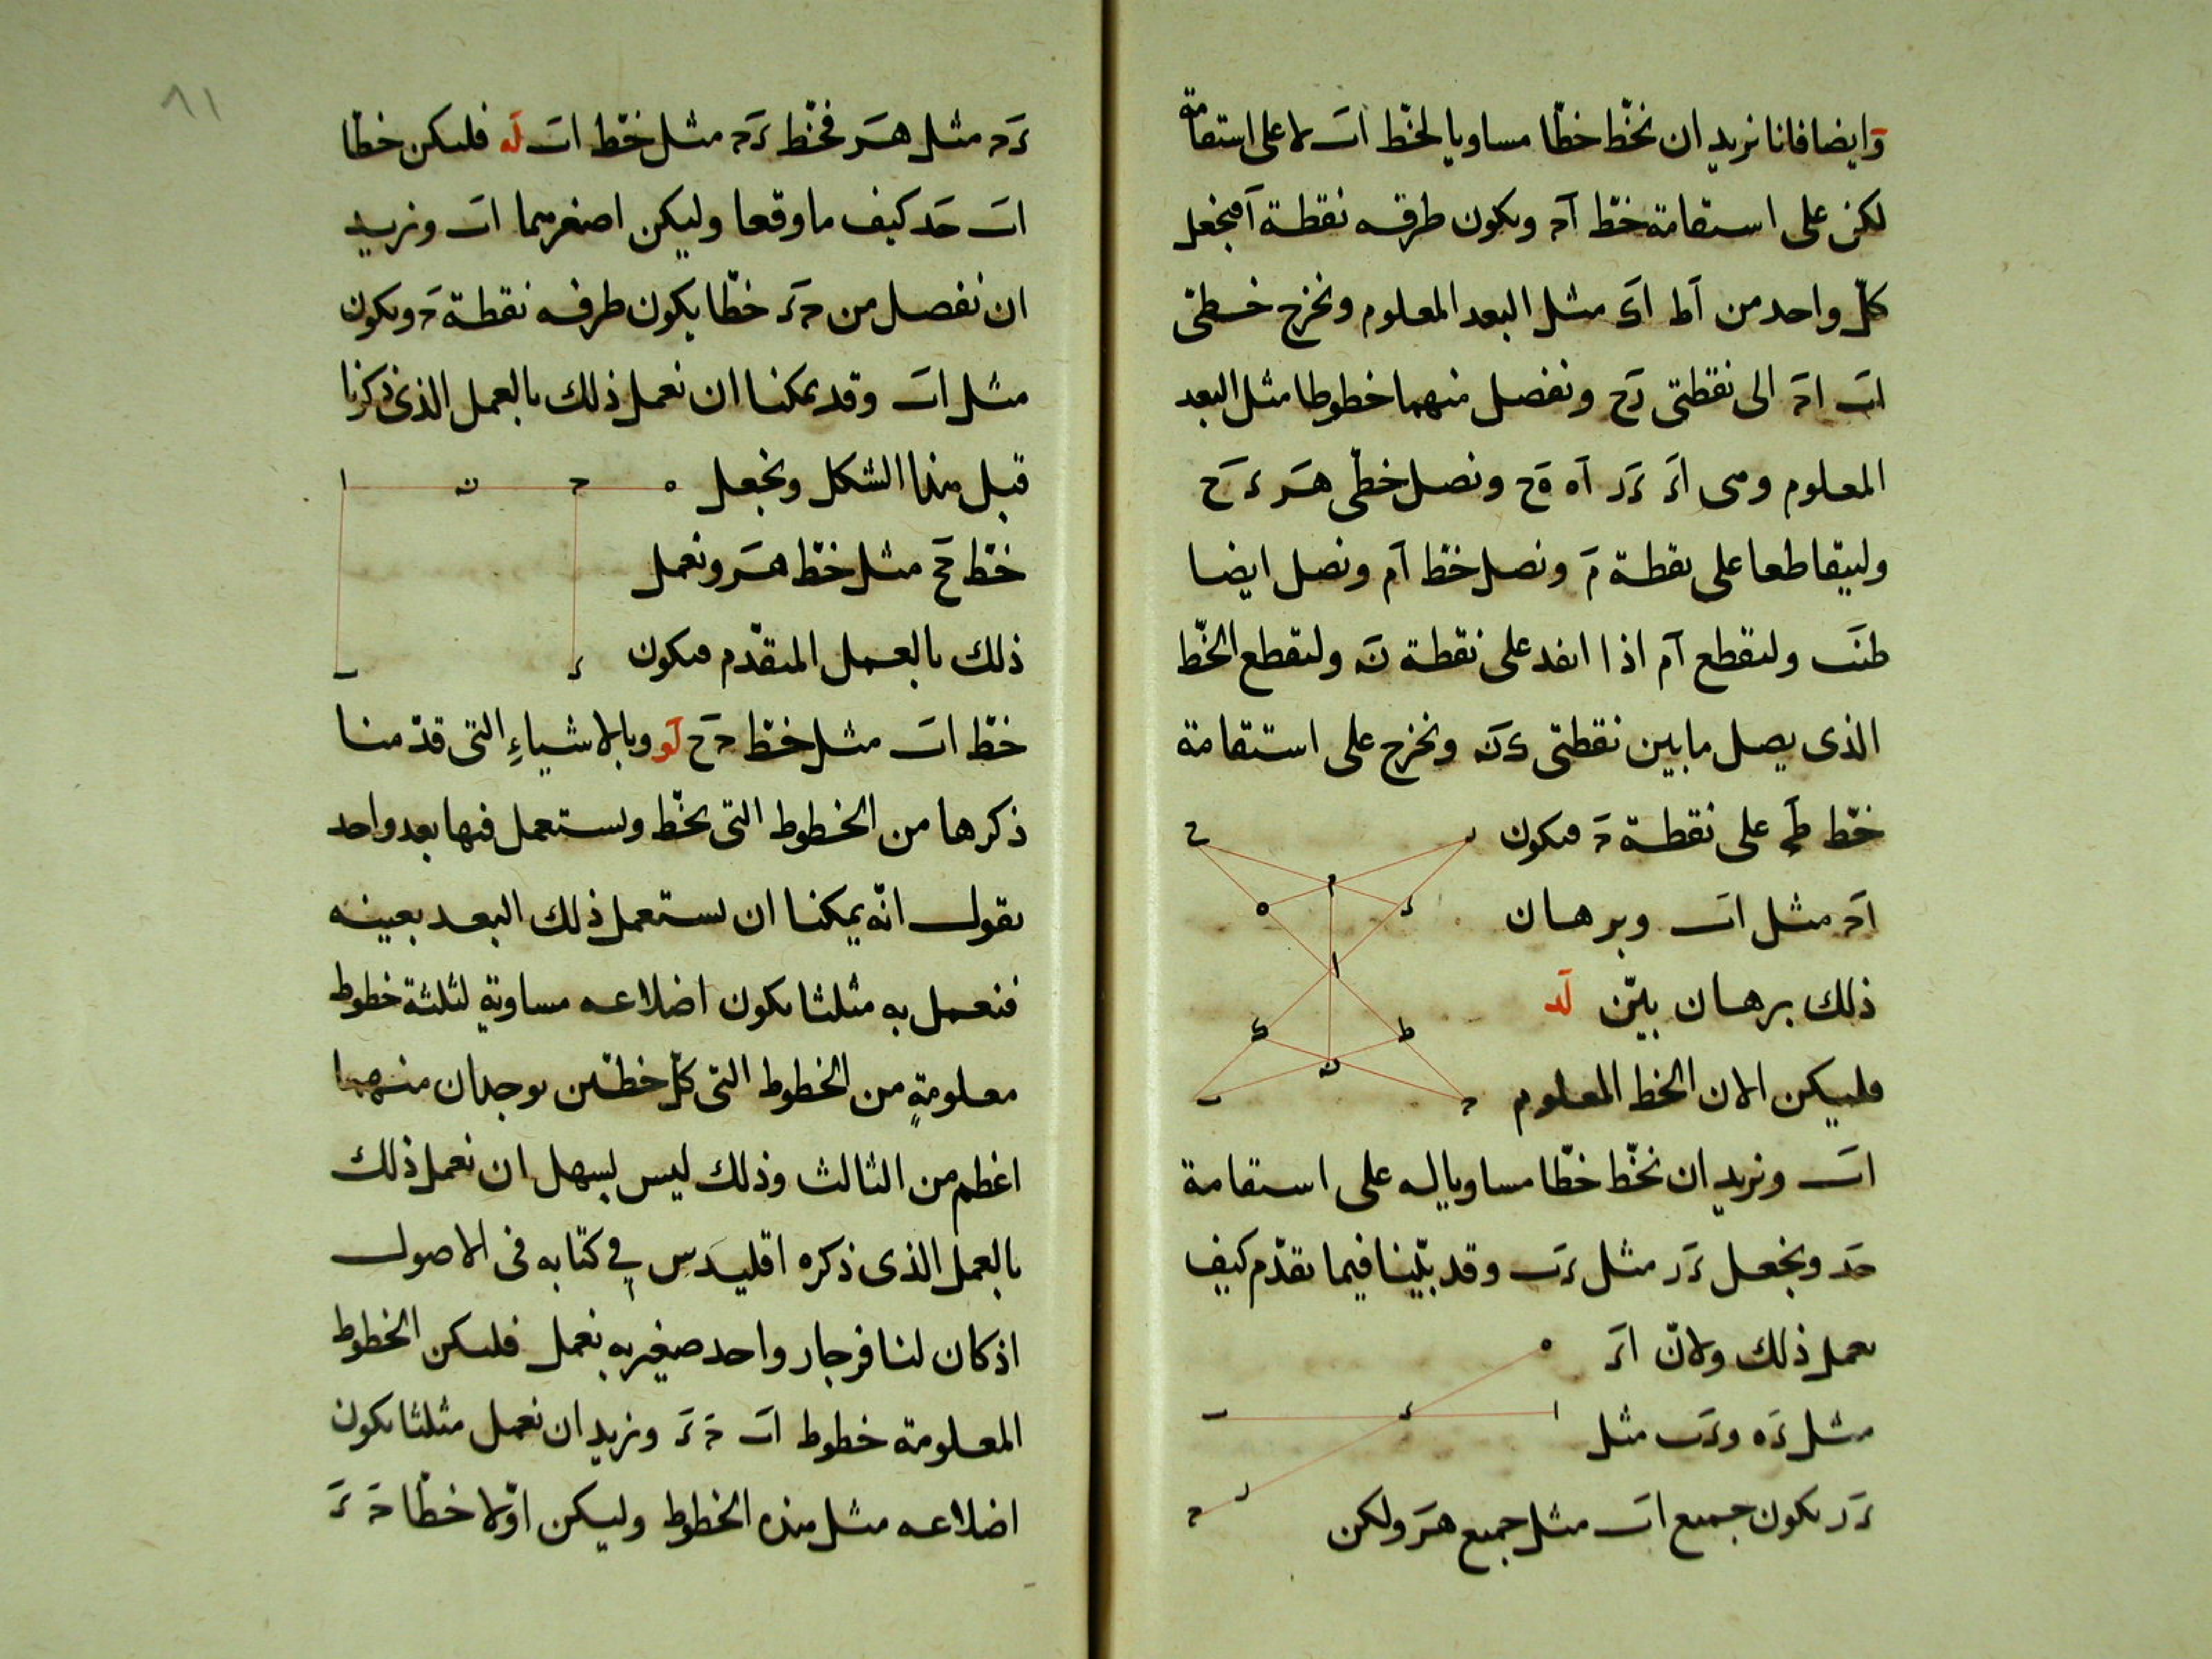 وايضا فانا نريد ان نخط خطا مساويا لخط اب لا على استقامة
لكن على استقامة خط اح ويكون طرفه نقطة ا فنجعل
كل واحد من اط اى مثل البعد المعلوم ونخرج خطى
اب اح الى نقطتى رح ونفصل منهما خطوطا مثل البعد
المعلوم وهى اء ءر اه هح ونصل خطى هر ءح
وليتقاطعا على نقطة م ونصل خط ام ونصل ايضا
طب ولتقطع ام اذا انفد على نقطة ن ولتقطع الخط
الذى يصل ما بين نقطتى ى ن ونخرج على استقامة
خط على نقطة ح فيكون
اح مثل اب وبرهان
ذلك برهان بين لد
فليكن الان الخط المعلوم
اب ونريد ان نخط خطا مساويا له على استقامة
حد ونجعل ءر مثل ءب وقد بينا فيما تقدم كيف
نعمل ذلك ولان اء
مثل ءه وءب مثل
ءر يكون جميع اب مثل جميع هر ولكن
ءح مثل هر فخط ءح مثل خط اب له فليكن خطا
اب حد كيف ما وقعا وليكن اصغرهما اب ونريد
ان نفصل من حء خطا يكون طرفه نقطة ح ويكون
مثل اب وقد يمكننا ان نعمل ذلك بالعمل الذى ذكرنا
قبل هذا الشكل ونجعل
خط مثل خط هر ونعمل
ذلك بالعمل المتقدم فيكون
خط اب مثل خط حح لو وبالاشياء التى قدمنا
ذكرها من الخطوط التى نخط ونستعمل فيها بعد واحد
نقول انه يمكننا ان نستعمل ذلك البعد بعينه
فنعمل به مثلثا تكون اضلاعه مساوية لثلثة خطوط
معلومة من الخطوط التى كل خطين يوجدان منهما
اعظم من الثالث وذلك ليس يسهل ان نعمل ذلك
بالعمل الذى ذكره اقليدس فى كتابه فى الاصول
اذ كان لنا فرجار واحد صغير به نعمل فليكن الخطوط
المعلومة خطوط اب ح ء ونريد ان نعمل مثلثا تكون
اضلاعه مثل هذه الخطوط وليكن اولا خطا ح ء
٨١